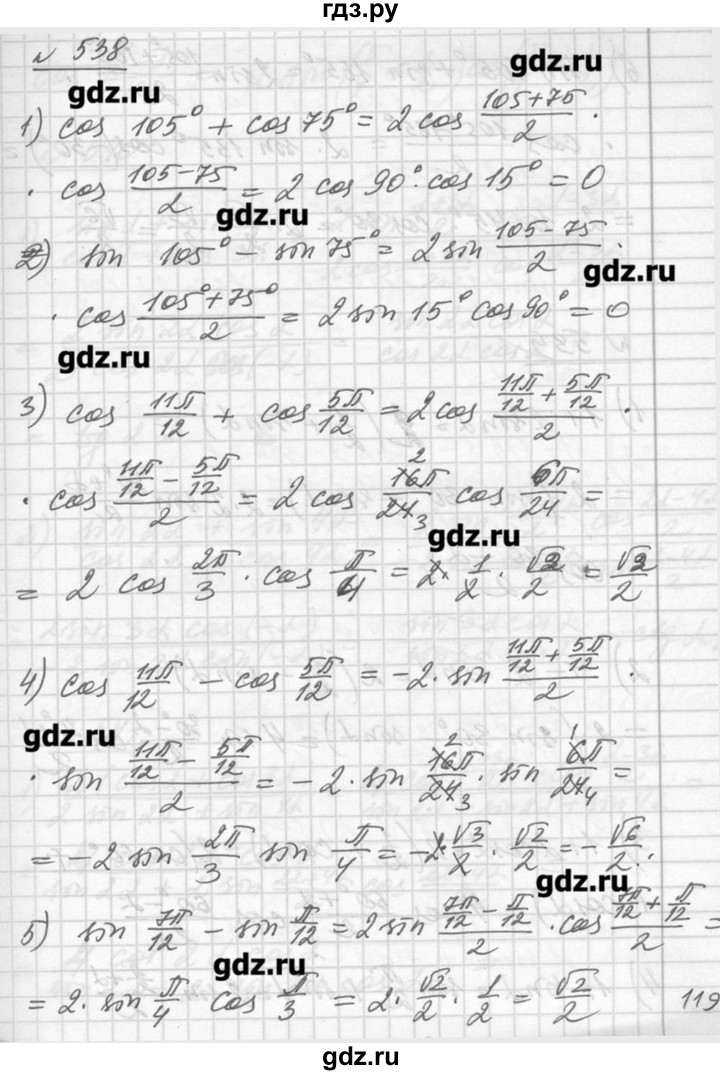 гдз.ру
№ 538
gdz.ru
gdz.ru
1) cos 105° + cos 75° = 2 cos (105+75)/2 ·
· cos (105-75)/2 = 2 cos 90° · cos 15° = 0
gdz.ru
2) sin 105° - sin 75° = 2 sin (105-75)/2 ·
gdz.ru
· cos (105°+75°)/2 = 2 sin 15° cos 90° = 0
gdz.ru
3) cos 11π/12 + cos 5π/12 = 2 cos (11π/12 + 5π/12)/2 ·
· cos (11π/12 - 5π/12)/2 = 2 cos 16π/24 cos 6π/24 =
2 3
gdz.ru
= 2 cos 2π/3 · cos π/4 = 2 · 1/2 · √2/2 = √2/2
4) cos 11π/12 - cos 5π/12 = -2 · sin (11π/12 + 5π/12)/2 ·
gdz.ru
· sin (11π/12 - 5π/12)/2 = -2 · sin 16π/24 · sin 6π/24 =
2 3 1 4
= -2 sin 2π/3 sin π/4 = -2 √3/2 · √2/2 = -√6/2.
gdz.ru
5) sin 7π/12 - sin π/12 = 2 sin (7π/12 - π/12)/2 · cos (7π/12 + π/12)/2 =
gdz.ru
= 2 · sin π/4 cos π/3 = 2 · √2/2 · 1/2 = √2/2
119
gdz.ru